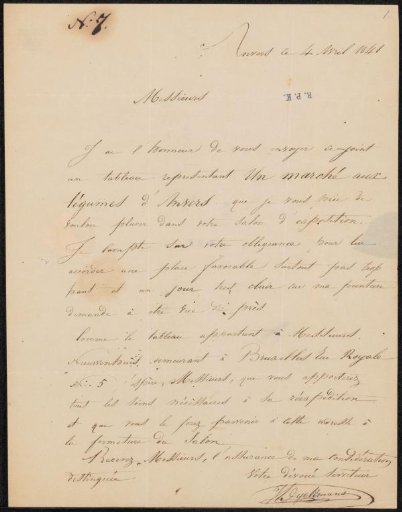 N. 7.
1
Anvers ce 4 Avril 1841
Messieurs
R. P. K.
J'ai l'honneur de vous envoyer ci-joint
un tableau représentant Un marché aux
légumes d'Anvers que je vous prie de
vouloir placer dans votre Salon d'exposition.
Je compte sur votre obligeance pour lui
accorder une place favorable surtout pas trop
haut et un jour clair ma peinture
demande à être vue de près.
Comme le tableau appartient à Messieurs
demeurant à Bruxelles rue Royale
N. 5 j'espère, Messieurs, que vous apporterez
tout les soins nécessaires à sa réexpédition
et que vous le ferez parvenir à cette adresse à
la fermeture du Salon.
Recevez, Messieurs, l'assurance de ma considération
distinguée
Votre dévoué serviteur
Dyckmans